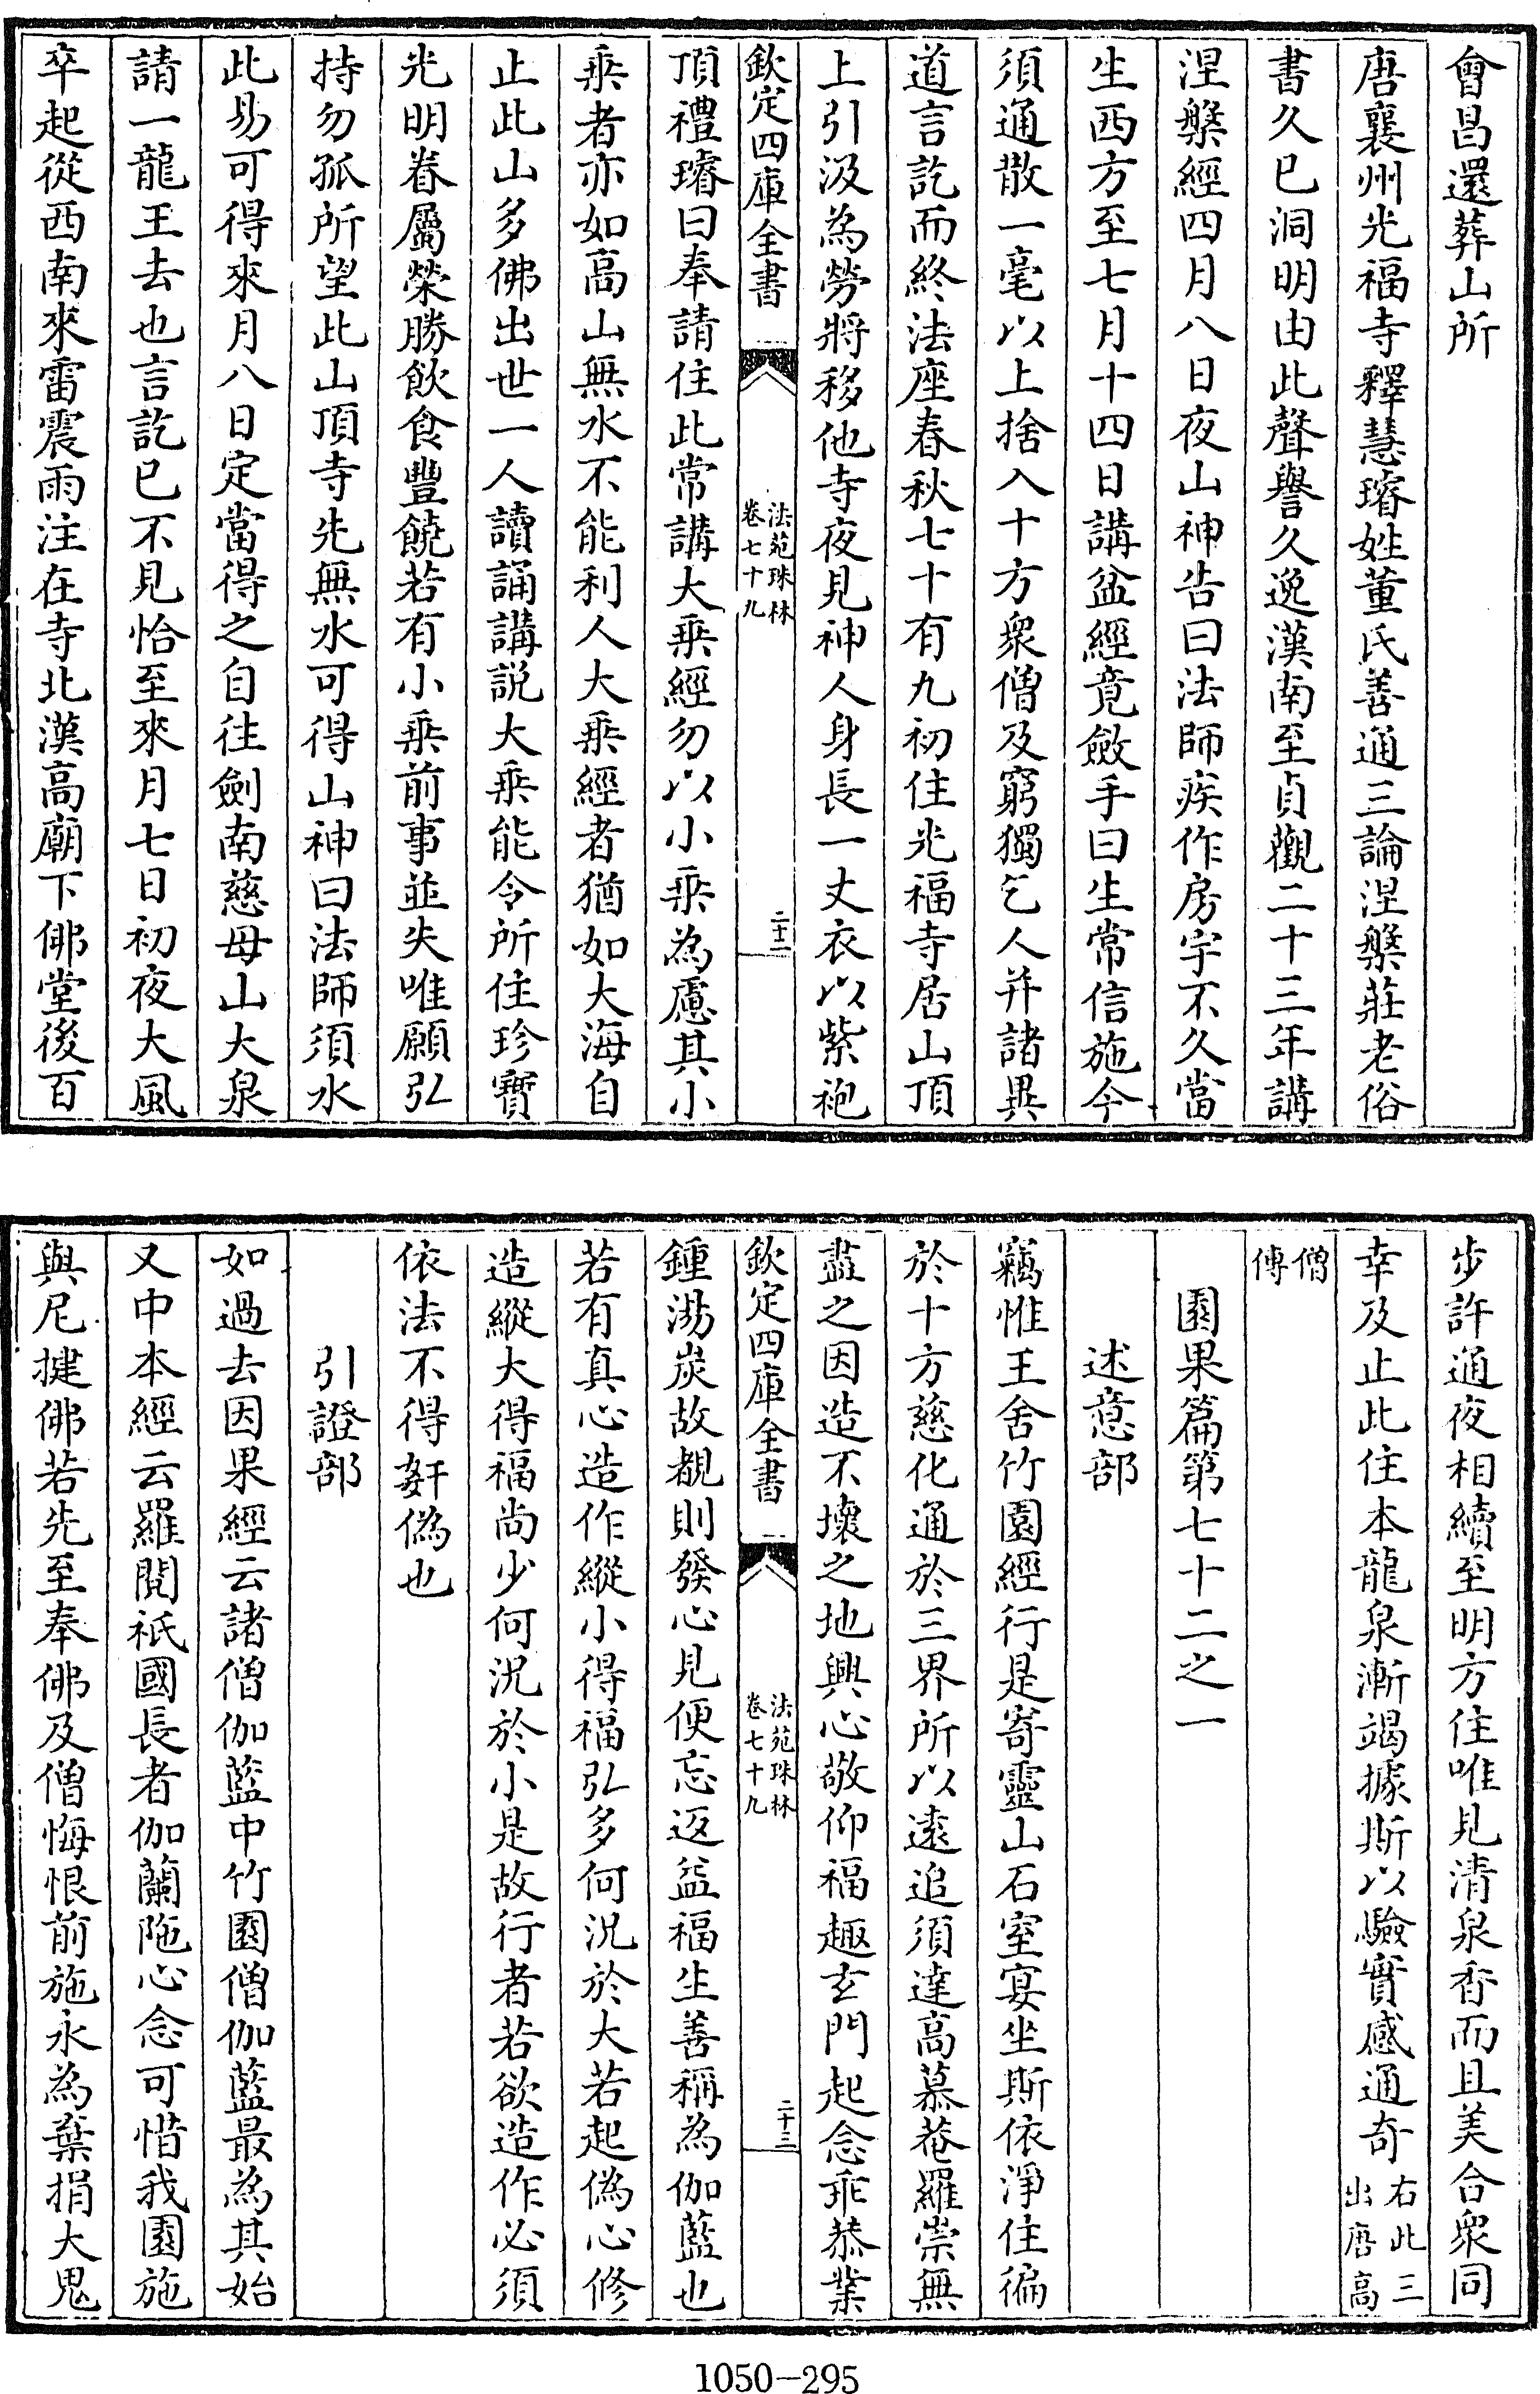 會昌還葬山所
唐襄州光福寺釋慧璿姓董氏善通三論涅槃莊老俗
書久已洞明由此聲譽久逸漢南至貞觀二十三年講
涅槃經四月八日夜山神告曰法師疾作房宇不久當
生西方至七月十四日講盆經竟斂手曰生常信施今
須通散一毫以上捨入十方衆僧及窮獨乞人并諸異
道言訖而終法座春秋七十有九初住光福寺居山頂
上引汲為勞將移他寺夜見神人身長一丈衣以紫袍
欽定四庫全書
法苑珠林
卷七十九
二十二
頂禮璿曰奉請住此常講大乘經勿以小乘為慮其小
乘者亦如高山無水不能利人大乘經者猶如大海自
止此山多佛出世一人讀誦講説大乘能令所住珍寶
光明眷屬榮勝飲食豐饒若有小乘前事並失唯願弘
持勿孤所望此山頂寺先無水可得山神曰法師須水
此易可得來月八日定當得之自往劍南慈母山大泉
請一龍王去也言訖已不見恰至來月七日初夜大風
卒起從西南來雷震雨注在寺北漢高廟下佛堂後百
步許通夜相續至明方住唯見清泉香而且美合衆同
幸及止此住本龍泉漸竭據斯以驗實感通奇
右此三
出唐高
僧
傳
園果篇第七十二之一
述意部
竊惟王舍竹園經行是寄靈山石室宴坐斯依淨住徧
於十方慈化通於三界所以遠追須達高慕菴羅崇無
盡之因造不壞之地興心敬仰福趣玄門起念乖恭業
欽定四庫全書
法苑珠林
卷七十九
二十三
鍾湯炭故覩則發心見便忘返益福生善稱為伽藍也
若有真心造作縱小得福弘多何況於大若起偽心修
造縱大得福尚少何況於小是故行者若欲造作必須
依法不得姧偽也
引證部
如過去因果經云諸僧伽藍中竹園僧伽藍最為其始
又中本經云羅閲祇國長者伽蘭陁心念可惜我園施
與尼揵佛若先至奉佛及僧悔恨前施永為棄捐大鬼
1050-295